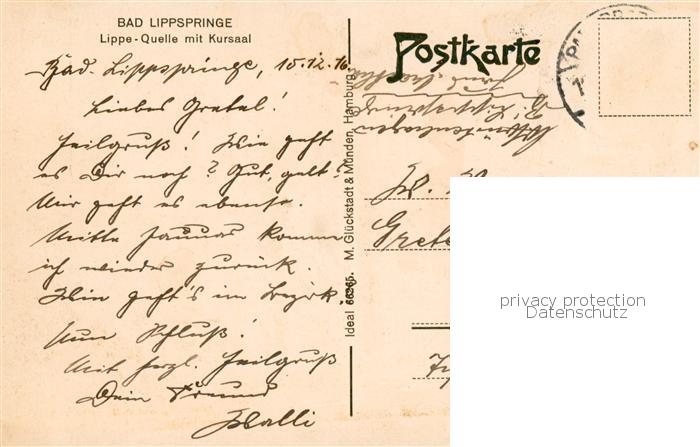 BAD LIPPSPRINGE
Lippe-Quelle mit Kursaal
Bad-Lippspringe, 15.12.16.
Liebes Gretel!
Heilgruß! Wie geht
es Dir noch? Gut, gelt?
Mir geht es ebenso.
Mitte Januar komme
ich wieder zurück.
Wie geht's im Bezirk.
Nun Schluß!
Mit herzl. Heilgruß
Dein Freund
Walli
Postkarte
Lippspringe
Ideal 66265. M. Glückstadt & Münden, Hamburg
privacy protection
Datenschutz